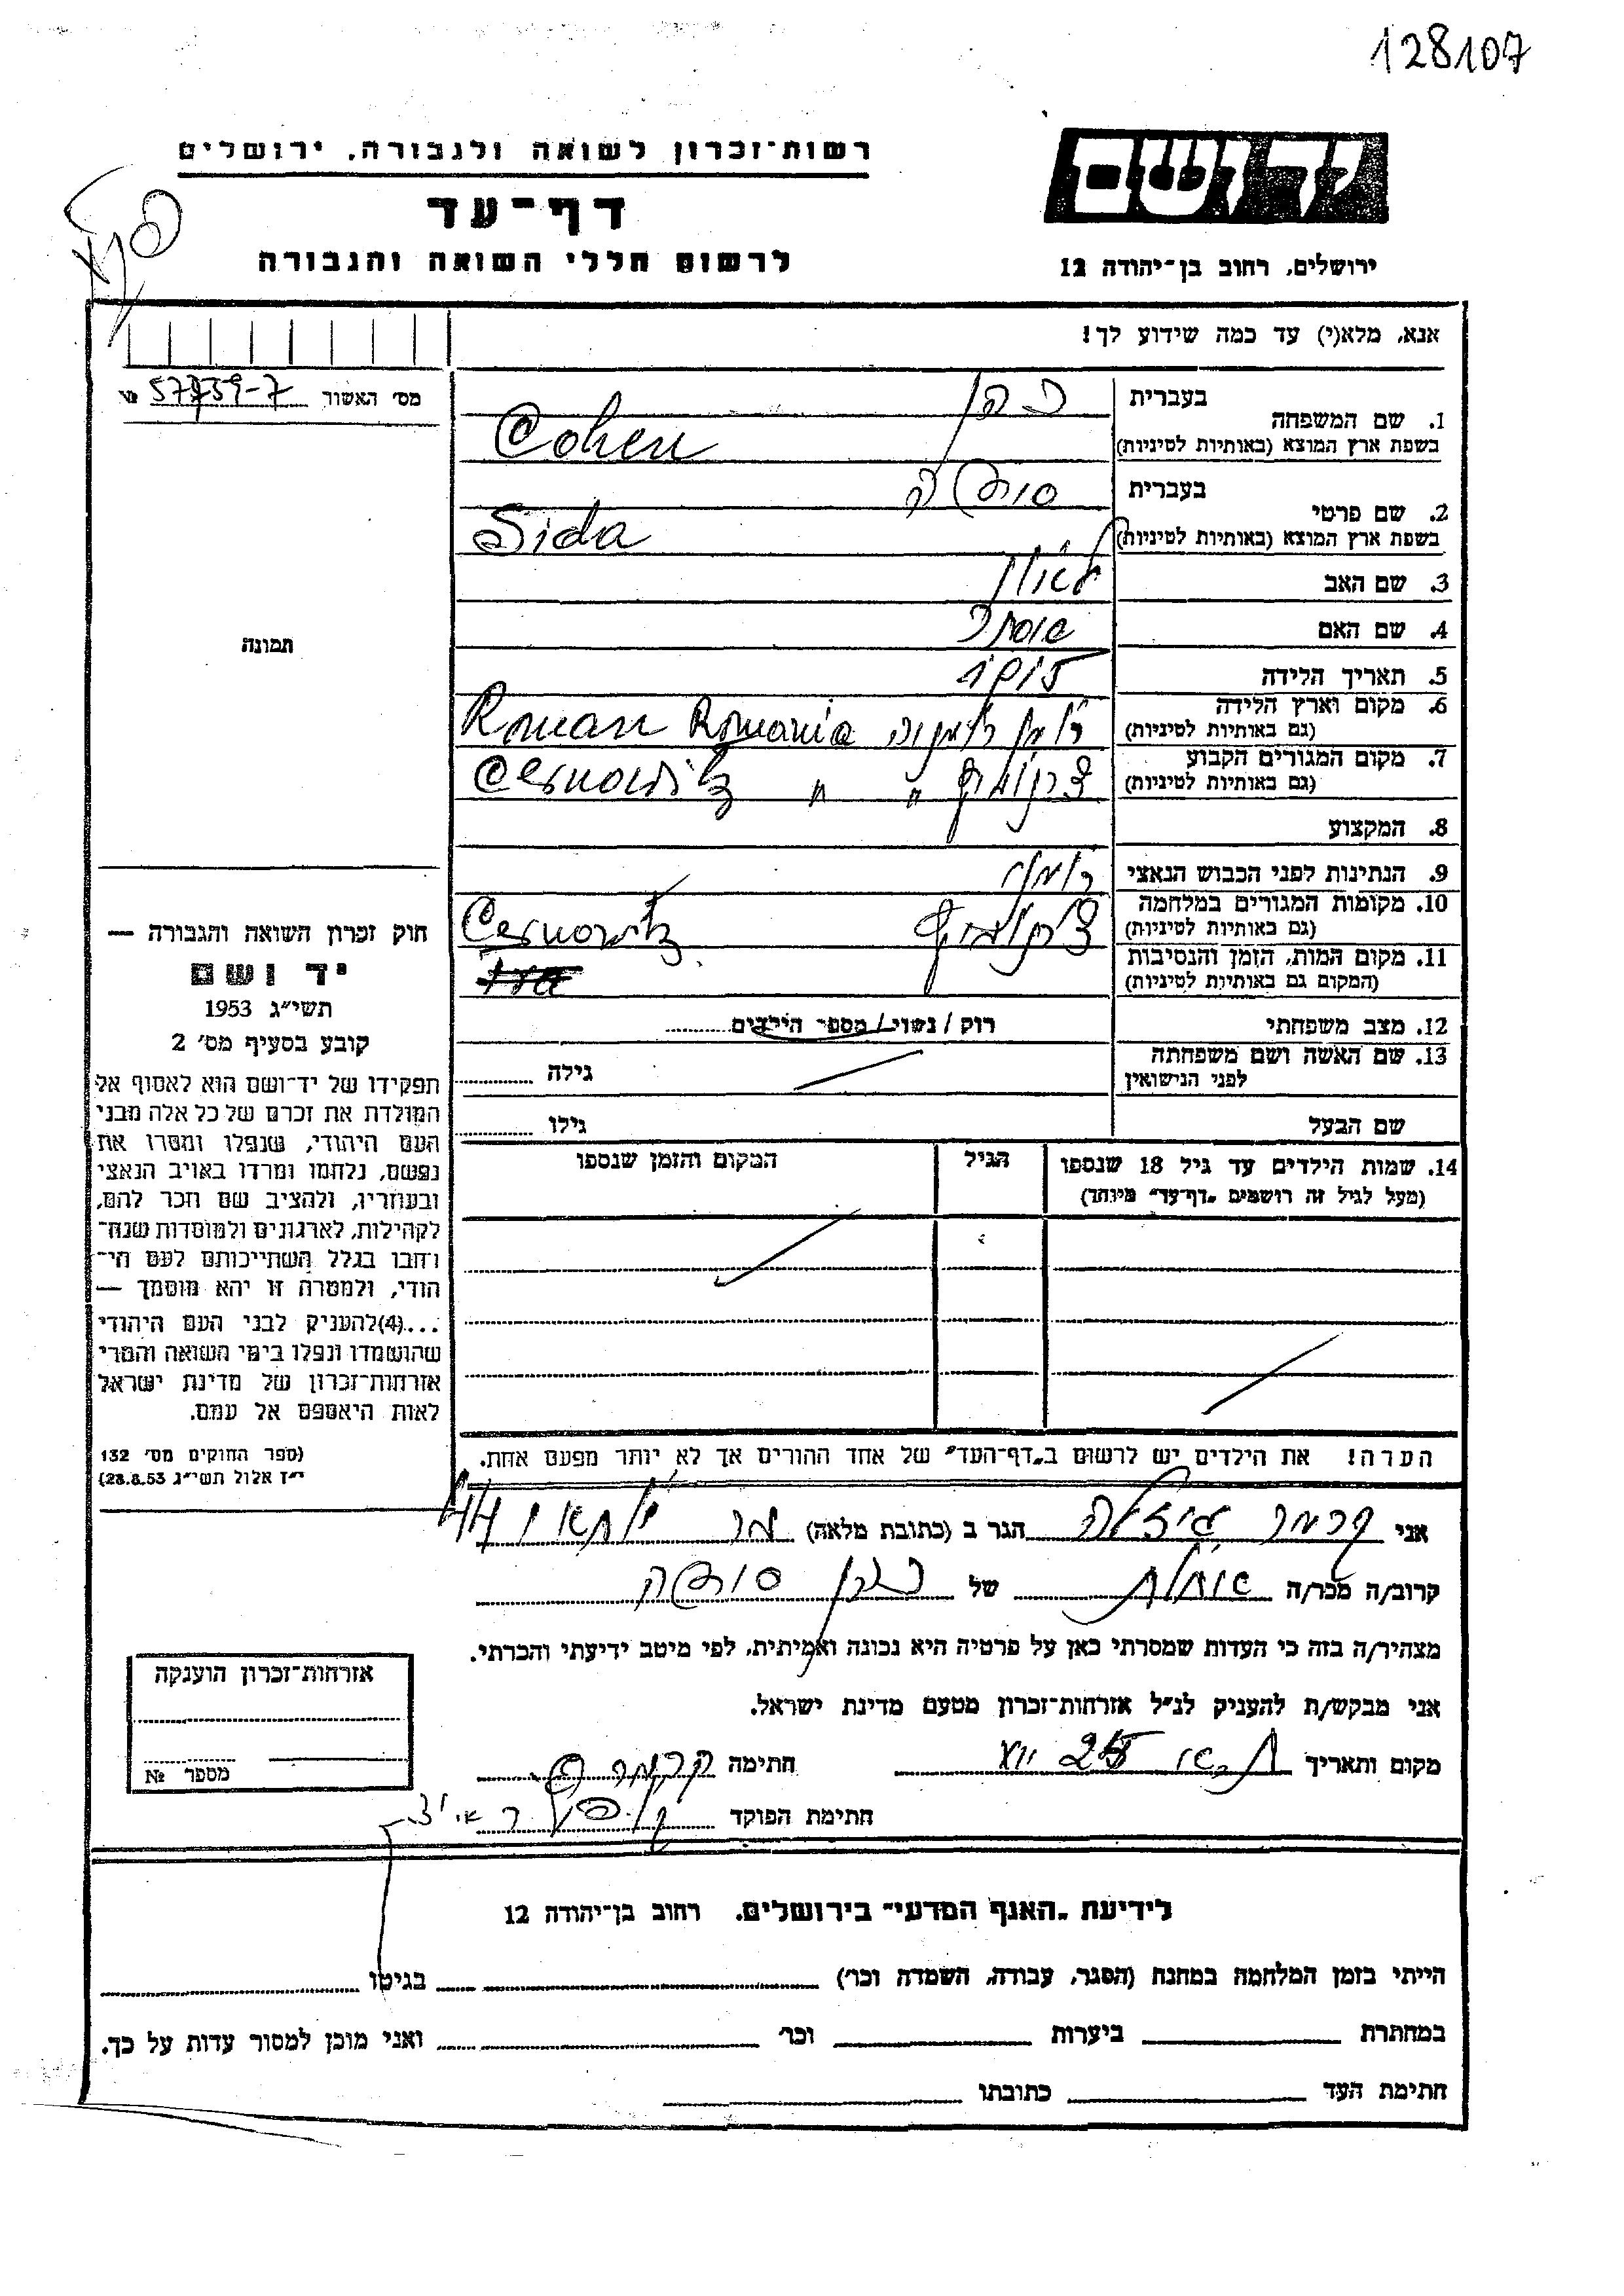 128107
יד ושם
רשות־זכרון לשואה ולגבורה, ירושלים
דף־עד
לרשום חללי השואה והגבורה
ירושלים, רחוב בן־יהודה 12
אנא, מלא(י) עד כמה שידוע לך!
מס׳ האשור 57739-7 №
1. שם המשפחה
בעברית כהן
בשפת ארץ המוצא (באותיות לטיניות) Cohen
2. שם פרטי
בעברית
בשפת ארץ המוצא (באותיות לטיניות) Sida
3. שם האב
4. שם האם
5. תאריך הלידה
6. מקום וארץ הלידה
(גם באותיות לטיניות) רומן רומניה Roman Romania
7. מקום המגורים הקבוע
(גם באותיות לטיניות) צרנוביץ " " Cernowitz
8. המקצוע
9. הנתינות לפני הכבוש הנאצי רומני
10. מקומות המגורים במלחמה
(גם באותיות לטיניות) צרנוביץ Cernowitz
11. מקום המות, הזמן והנסיבות
(המקום גם באותיות לטיניות)
12. מצב משפחתי רוק / נשוי / מספר הילדים
13. שם האשה ושם משפחתה
לפני הנישואין
גילה
שם הבעל גילו
14. שמות הילדים עד גיל 18 שנספו
(מעל לגיל זה רושמים „דף־עד״ מיוחד)
הגיל
המקום והזמן שנספו
הערה! את הילדים יש לרשום ב„דף־העד״ של אחד ההורים אך לא יותר מפעם אחת.
תמונה
חוק זכרון השואה והגבורה —
יד ושם
תשי״ג 1953
קובע בסעיף מס׳ 2
תפקידו של יד־ושם הוא לאסוף אל
המולדת את זכרם של כל אלה מבני
העם היהודי, שנפלו ומסרו את
נפשם, נלחמו ומרדו באויב הנאצי
ובעוזריו, ולהציב שם וזכר להם,
לקהילות, לארגונים ולמוסדות שנח־
רבו בגלל השתייכותם לעם הי־
הודי, ולמטרה זו יהא מוסמך —
...(4) להעניק לבני העם היהודי
שהושמדו ונפלו בימי השואה והמרי
אזרחות־זכרון של מדינת ישראל
לאות היאספם אל עמם.
(ספר החוקים מס׳ 132
י״ז אלול תשי״ג 28.8.53)
אני קרמר הגר ב (כתובת מלאה)
קרוב/ה מכר/ה אחות של כהן
מצהיר/ה בזה כי העדות שמסרתי כאן על פרטיה היא נכונה ואמיתית, לפי מיטב ידיעתי והכרתי.
אני מבקש/ת להעניק לנ״ל אזרחות־זכרון מטעם מדינת ישראל.
מקום ותאריך חתימה קרמר
חתימת הפוקד
אזרחות־זכרון הוענקה
מספר №
לידיעת „האגף המדעי״ בירושלים, רחוב בן־יהודה 12
הייתי בזמן המלחמה במחנה (הסגר, עבודה, השמדה וכו׳) בגיטו
במחתרת ביערות וכו׳ ואני מוכן למסור עדות על כך.
חתימת העד כתובתו